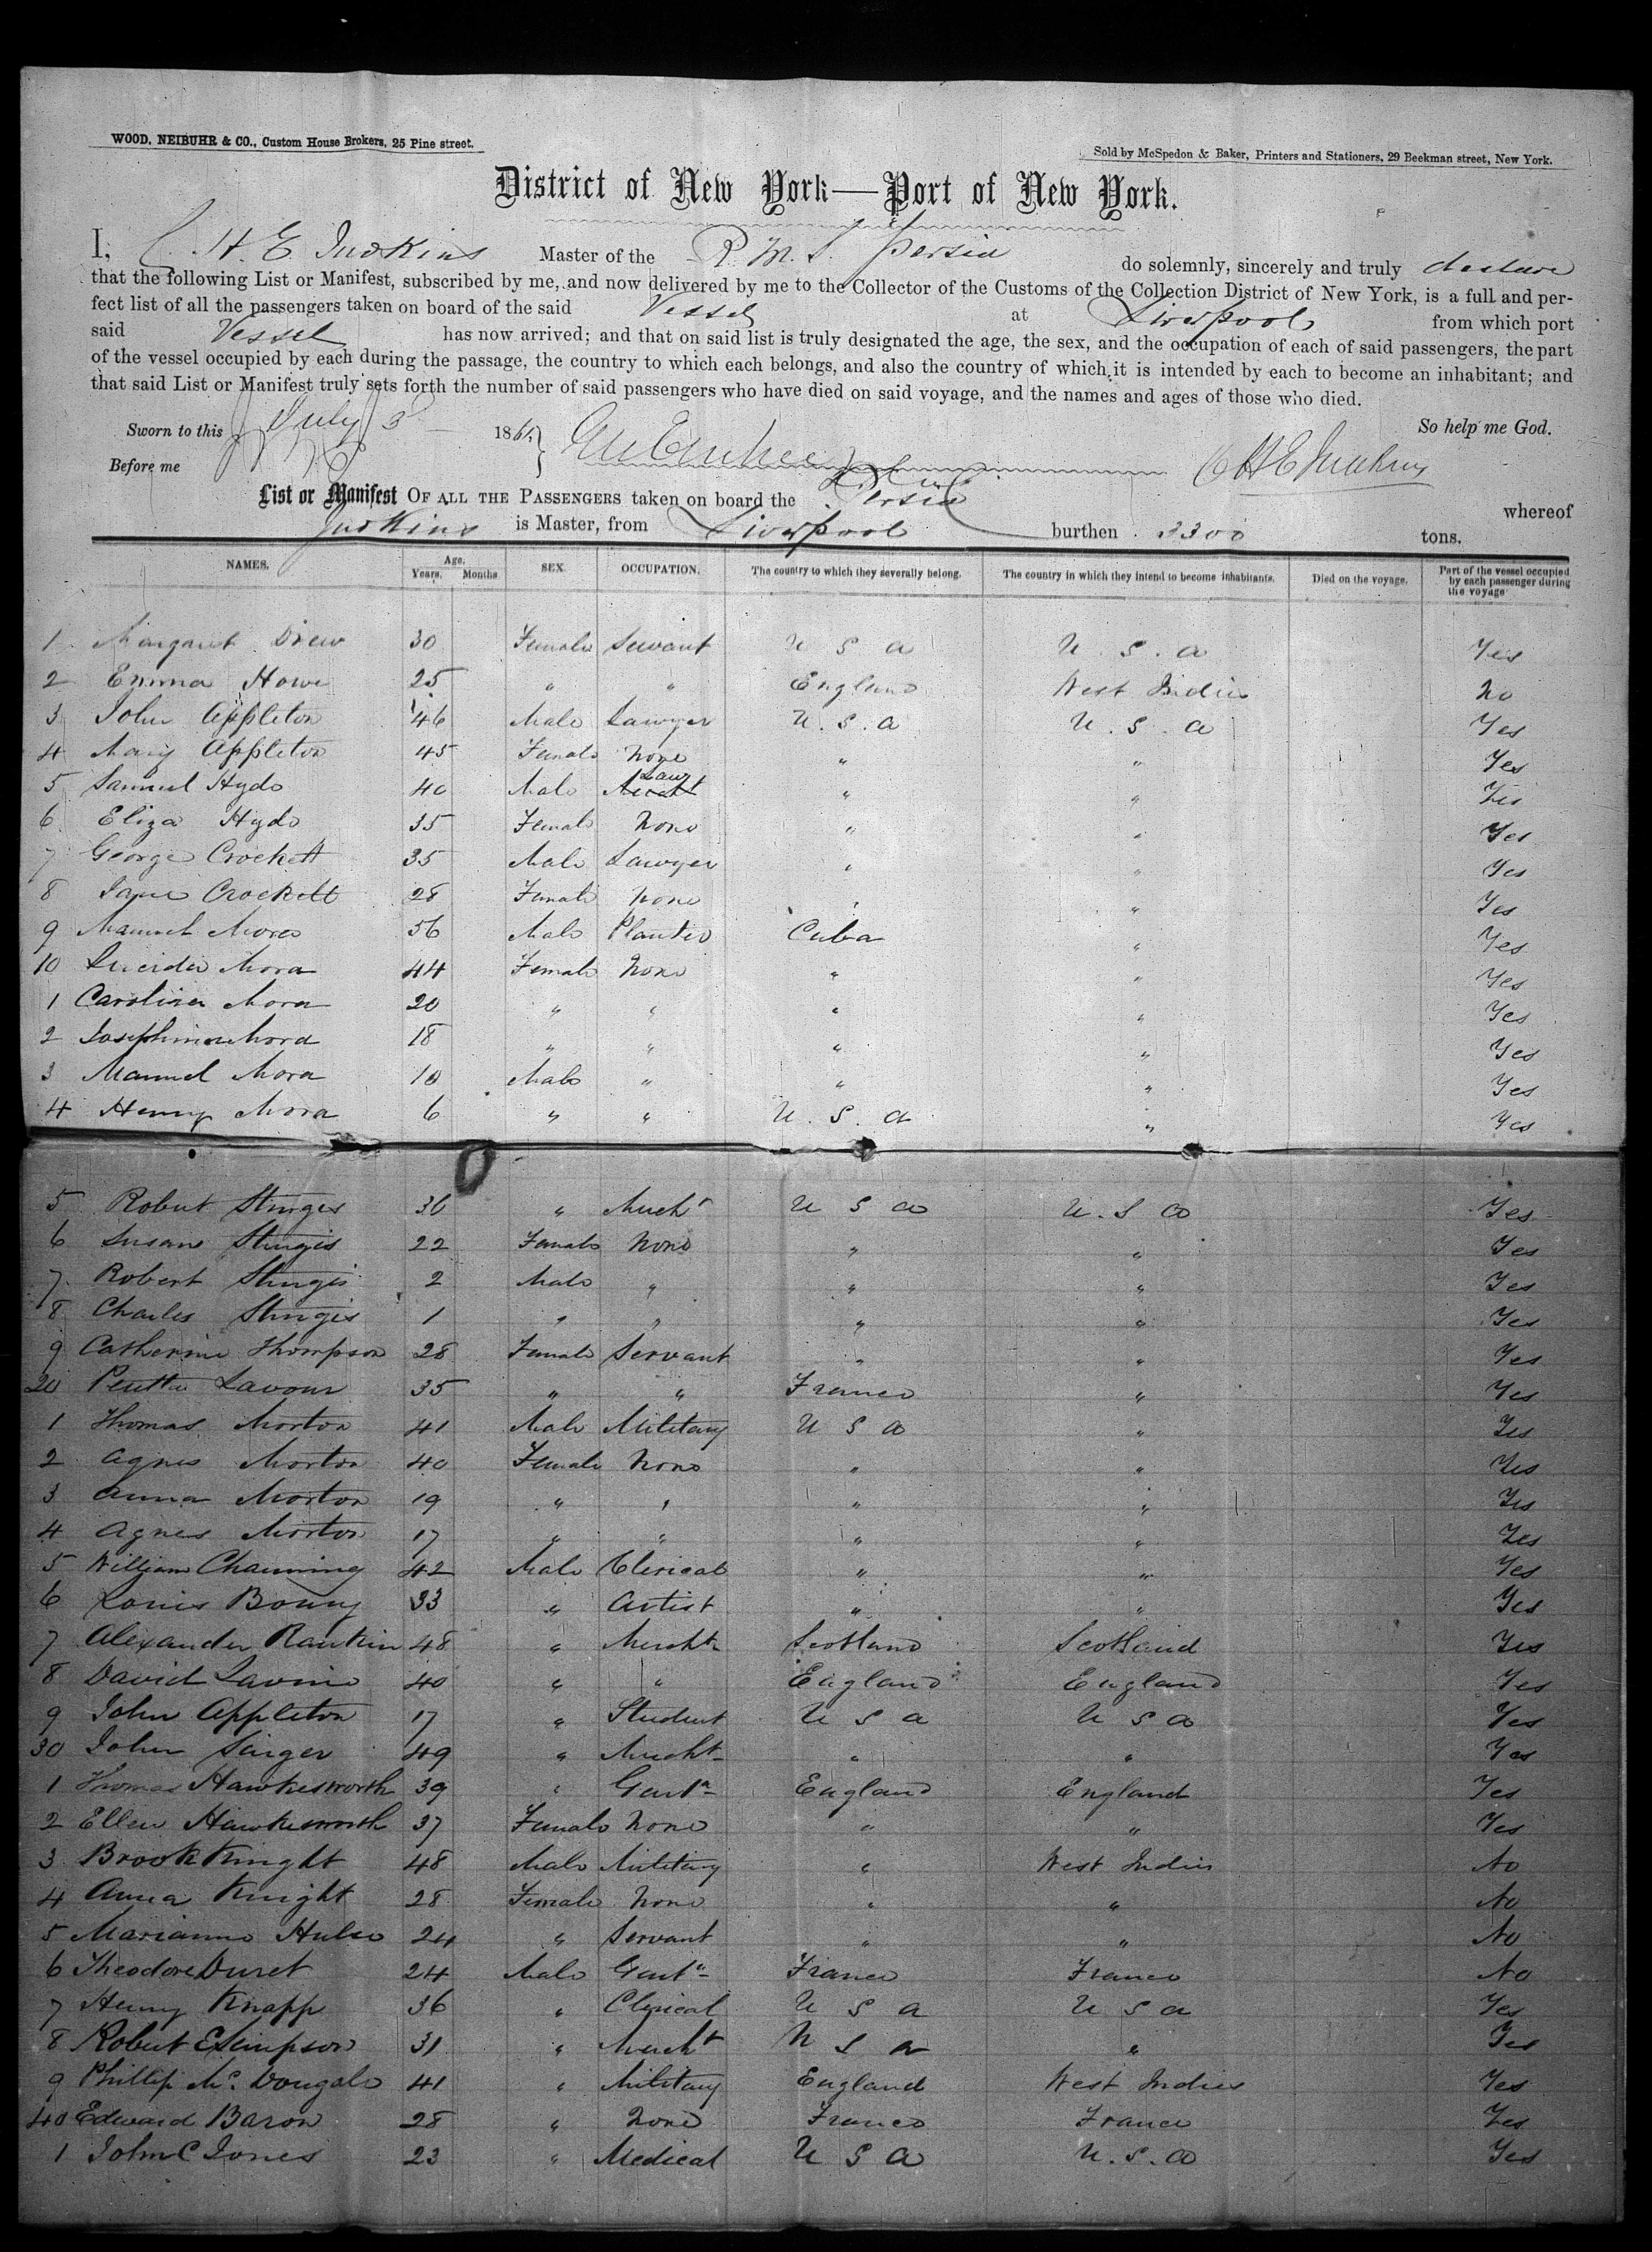 WOOD, NEIBUHR & CO., Custom House Brokers, 25 Pine street.
Sold by McSpedon & Baker, Printers and Stationers, 29 Beekman street, New York.
District of New York—Port of New York.
I, C. H. E. Judkins Master of the R. M. S. Persia do solemnly, sincerely and truly declare
that the following List or Manifest, subscribed by me, and now delivered by me to the Collector of the Customs of the Collection District of New York, is a full and per-
fect list of all the passengers taken on board of the said Vessel at Liverpool from which port
said Vessel has now arrived; and that on said list is truly designated the age, the sex, and the occupation of each of said passengers, the part
of the vessel occupied by each during the passage, the country to which each belongs, and also the country of which it is intended by each to become an inhabitant; and
that said List or Manifest truly sets forth the number of said passengers who have died on said voyage, and the names and ages of those who died.
Sworn to this July 3 1861, So help me God.
Before me C H E Judkins
List or Manifest OF ALL THE PASSENGERS taken on board the Persia whereof
Judkins is Master, from Liverpool burthen 3300 tons.
NAMES. Age. Years. Months SEX. OCCUPATION. The country to which they severally belong. The country in which they intend to become inhabitants. Died on the voyage. Part of the vessel occupied by each passenger during the voyage
1 Margaret Drew 30 Female Servant U S A U. S. A Yes
2 Emma Howe 25 " " England West Indies No
3 John Appleton 46 Male Lawyer U. S. A U. S. A Yes
4 Mary Appleton 45 Female None " " Yes
5 Samuel Hyde 40 Male Law " " Yes
6 Eliza Hyde 35 Female None " " Yes
7 George Crockett 35 Male Lawyer " " Yes
8 Jane Crockett 28 Female None " " Yes
9 Manuel Mora 56 Male Planter Cuba " Yes
10 Mora 44 Female None " " Yes
1 Carolina Mora 20 " " " " Yes
2 Josephine Mora 18 " " " " Yes
3 Manuel Mora 10 Male " " " Yes
4 Henry Mora 6 " " U. S. A " Yes
5 Robert Sturges 36 " Mercht U S A U. S A Yes
6 Susan Sturgis 22 Female None " " Yes
7 Robert Sturgis 2 Male " " " Yes
8 Charles Sturgis 1 " " " " Yes
9 Catherine Thompson 28 Female Servant " " Yes
20 Lavour 35 " " France " Yes
1 Thomas Morton 41 Male Military U S A " Yes
2 Agnes Morton 40 Female None " " Yes
3 Anna Morton 19 " " " " Yes
4 Agnes Morton 17 " " " " Yes
5 William Channing 42 Male Clerical " " Yes
6 Louis Bonny 33 " Artist " " Yes
7 Alexander Rankin 48 " Mercht Scotland Scotland Yes
8 David Lavino 40 " " England England Yes
9 John Appleton 17 " Student U S A U S A Yes
30 John Singer 49 " Mercht " " Yes
1 Thomas Hawkesworth 39 " Gent England England Yes
2 Ellen Hawkesworth 37 Female None " " Yes
3 Brook Knight 48 Male Military " West Indies No
4 Anna Knight 28 Female None " " No
5 Marianne Hulse 24 " Servant " " No
6 Theodore Duret 24 Male Gent France France No
7 Henry Knapp 36 " Clerical U S A U S A Yes
8 Robert E Simpson 31 " Mercht U S A " Yes
9 Phillip Mc Dougale 41 " Military England West Indies Yes
40 Edward Baron 28 " None France France Yes
1 John C Jones 23 " Medical U S A U. S. A Yes